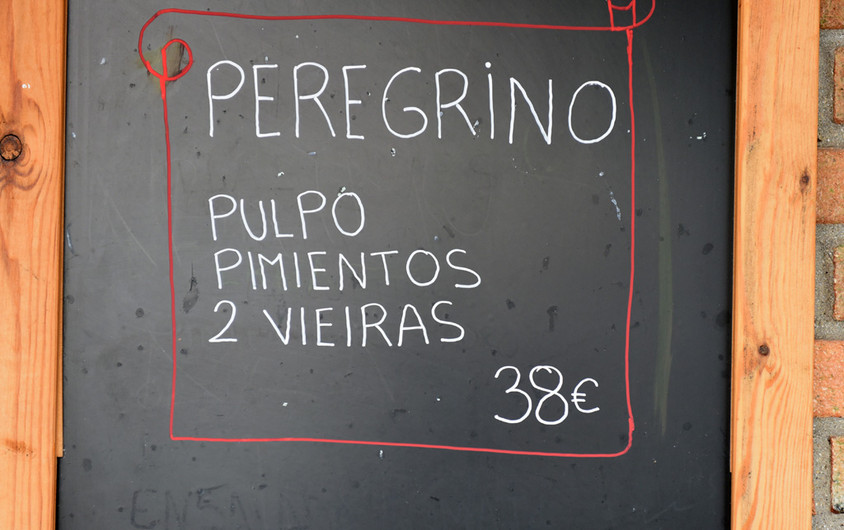 PEREGRINO
PULPO
PIMIENTOS
2 VIEIRAS
38€